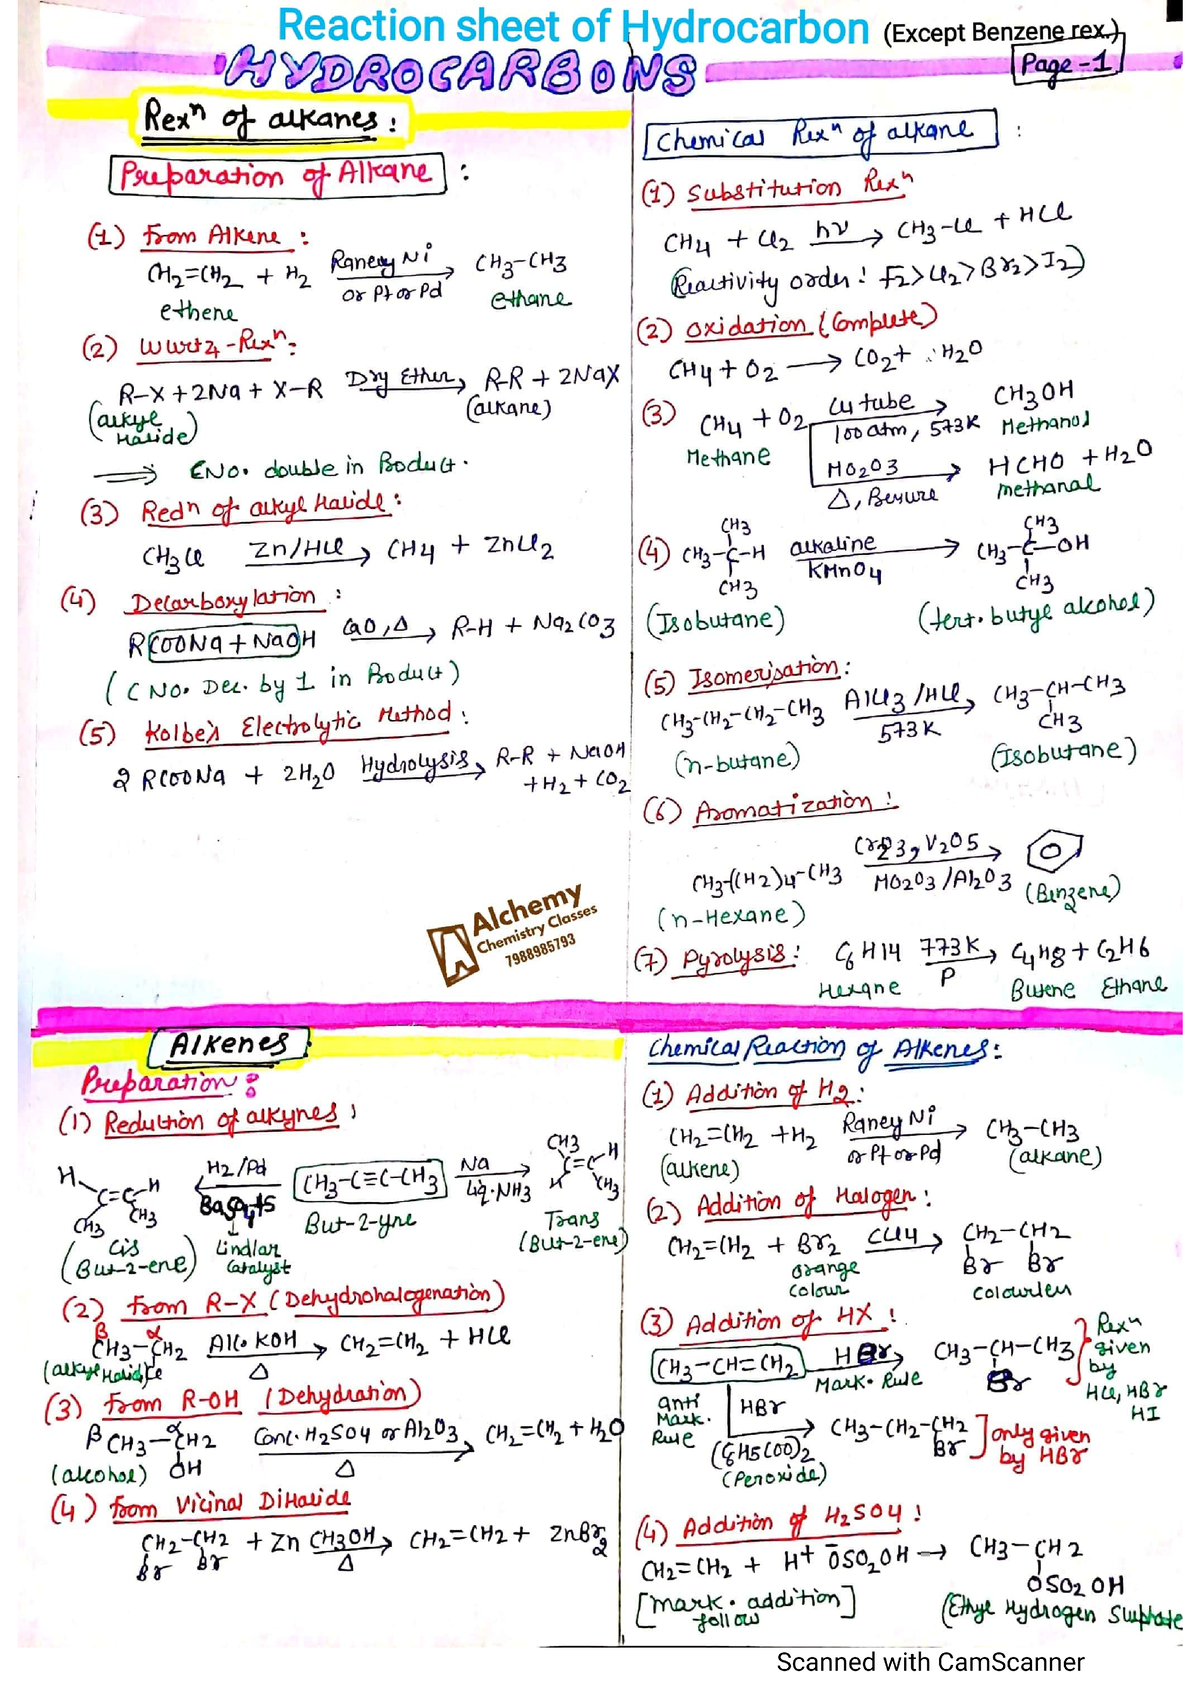 Reaction sheet of Hydrocarbon (Except Benzene rex.)
HYDROCARBONS
Page-1
Rexⁿ of alkanes:
Preparation of Alkane :
(1) from Alkene :
CH2=CH2 + H2 Raney Ni or Pt or Pd → CH3-CH3
ethene ethane
(2) Wurtz-Rexⁿ:
R-X + 2Na + X-R Dry Ether → R-R + 2NaX
(alkyl Halide) (alkane)
⟹ C No. double in Product.
(3) Redⁿ of alkyl Halide:
CH3Cl Zn/HCl → CH4 + ZnCl2
(4) Decarboxylation :
RCOONa + NaOH CaO, Δ → R-H + Na2CO3
(C No. Dec. by 1 in Product)
(5) Kolbe's Electrolytic Method :
2 RCOONa + 2H2O Hydrolysis → R-R + NaOH
+ H2 + CO2
Alchemy
Chemistry Classes
7988985793
Chemical Rexⁿ of alkane :
(1) Substitution Rexⁿ
CH4 + Cl2 hν → CH3-Cl + HCl
(Reactivity order! F2>Cl2>Br2>I2)
(2) Oxidation (Complete)
CH4 + O2 → CO2 + H2O
(3) CH4 + O2 Cu tube 100 atm, 573K → CH3OH
Methane Methanol
MO2O3 Δ, Pressure → HCHO + H2O
methanal
(4) CH3-C-H alkaline KMnO4 → CH3-C-OH
CH3 CH3
CH3 CH3
(Isobutane) (tert. butyl alcohol)
(5) Isomerisation:
CH3-CH2-CH2-CH3 AlCl3/HCl, 573K → CH3-CH-CH3
CH3
(n-butane) (Isobutane)
(6) Aromatization :
CH3-(CH2)4-CH3 Cr2O3, V2O5 MO2O3/Al2O3 →
(n-Hexane) (Benzene)
(7) Pyrolysis: C6H14 773K P → C4H8 + C2H6
Hexane Butene Ethane
Alkenes
Preparation:
(1) Reduction of alkynes:
H C=C H CH3 CH3 ← H2/Pd BaSO4+S CH3-C≡C-CH3 Na Liq. NH3 → CH3 C=C H H CH3
cis (But-2-ene) Lindlar Catalyst But-2-yne Trans (But-2-ene)
(2) from R-X (Dehydrohalogenation)
β α
CH3-CH2 Alc. KOH Δ → CH2=CH2 + HCl
(alkyl Halide) Cl
(3) from R-OH (Dehydration)
β CH3-α CH2 Conc. H2SO4 or Al2O3, Δ → CH2=CH2 + H2O
(alcohol) OH
(4) from Vicinal DiHalide
CH2-CH2 + Zn CH3OH Δ → CH2=CH2 + ZnBr2
Br Br
Chemical Reaction of Alkenes:
(1) Addition of H2:
CH2=CH2 + H2 Raney Ni or Pt or Pd → CH3-CH3
(alkene) (alkane)
(2) Addition of Halogen:
CH2=CH2 + Br2 CCl4 → CH2-CH2
Br Br
orange colour colourless
(3) Addition of HX :
CH3-CH=CH2 HBr Mark. Rule → CH3-CH-CH3
Br
Rexⁿ given by HCl, HBr HI
anti Mark. Rule HBr (C6H5COO)2 (Peroxide) → CH3-CH2-CH2
Br
only given by HBr
(4) Addition of H2SO4 !
CH2=CH2 + H+ ŌSO2OH → CH3-CH2
OSO2OH
[Mark. addition follow] (Ethyl Hydrogen Sulphate
Scanned with CamScanner